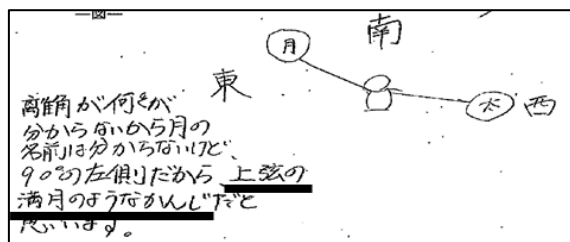 一図一
南
月
東
太
西
離角が何をが
分からないから月の
名前は分からないけど、
90°の左側だから、上弦の
満月のようなかんじだと
思います。